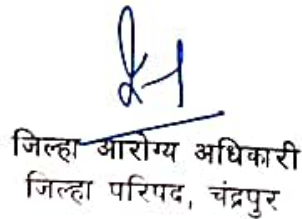 जिल्हा आरोग्य अधिकारी
जिल्हा परिषद, चंद्रपुर